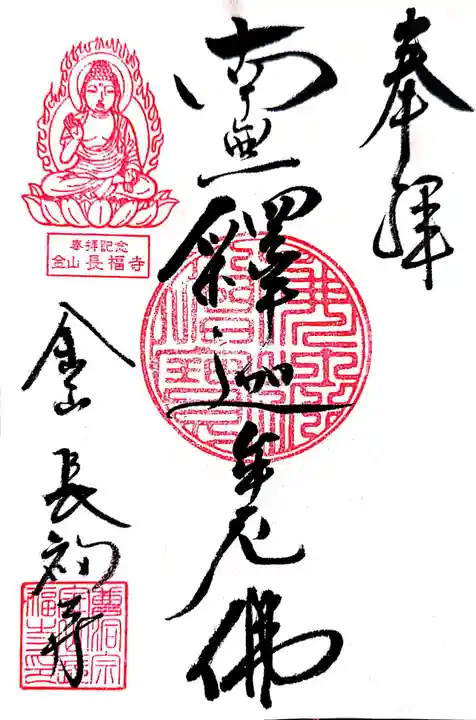 奉拝
南無釋迦牟尼佛
参拝記念
金山 長福寺
金山 長福寺